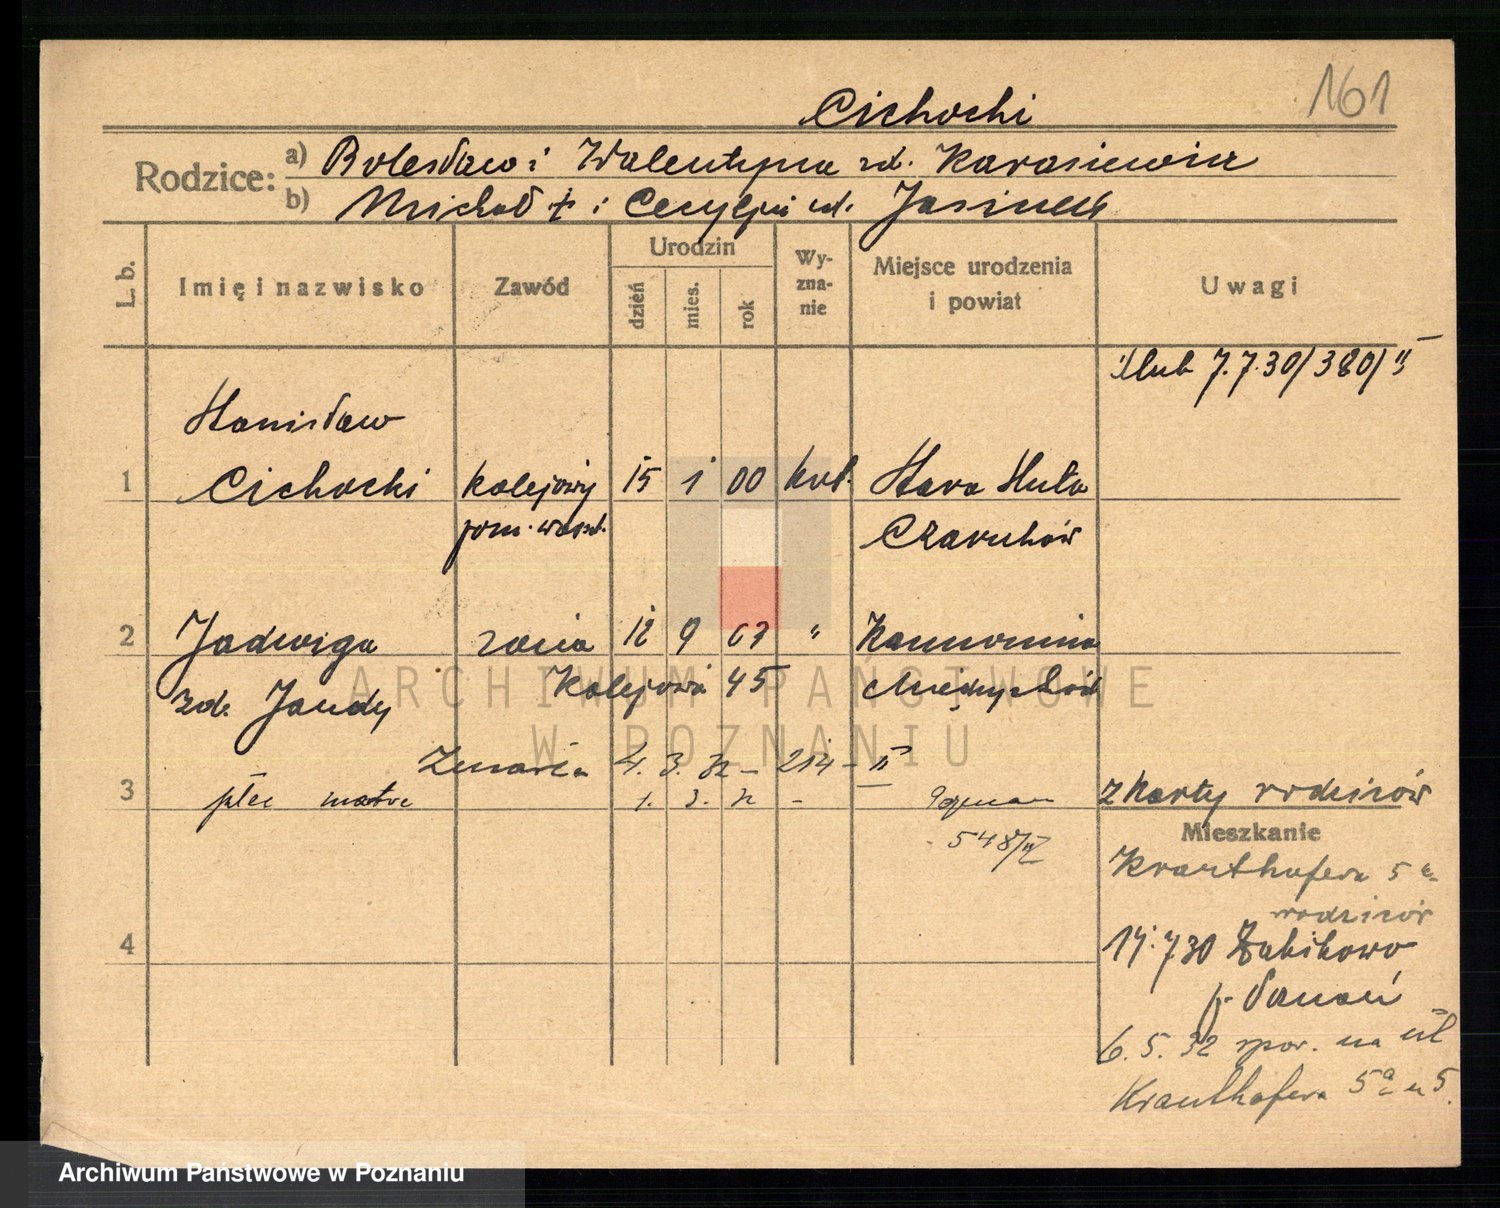 161
Cichocki
Rodzice:
a) Bolesław i Walentyna zd. Karasiewicz
b) Michał † i Cecylja zd. Jasinek
L. b.
Imię i nazwisko
Zawód
Urodzin
dzień
mies.
rok
Wy-
zna-
nie
Miejsce urodzenia
i powiat
Uwagi
ślub 7.7.30/380/II
Stanisław
1 Cichocki kolejowy 15 1 00 kat. Stara Huta
pom. warszt. Czarnków
2 Jadwiga żona 12 9 07 " Kamionna
zd. Jandy Kolejowa 45 Międzychód
ARCHIWUM PAŃSTWOWE
W POZNANIU
Zmarła 4. 3. 32 - 214 - II
3 płeć 1. 3. 32 - Poznań
z karty rodziców
548/II
Mieszkanie
Krauthofera 5 u
rodziców
14.7.30 Żabikowo
p. Poznań
6. 5. 32 spow. na ul
Krauthofera 5a m 5.
4
Archiwum Państwowe w Poznaniu